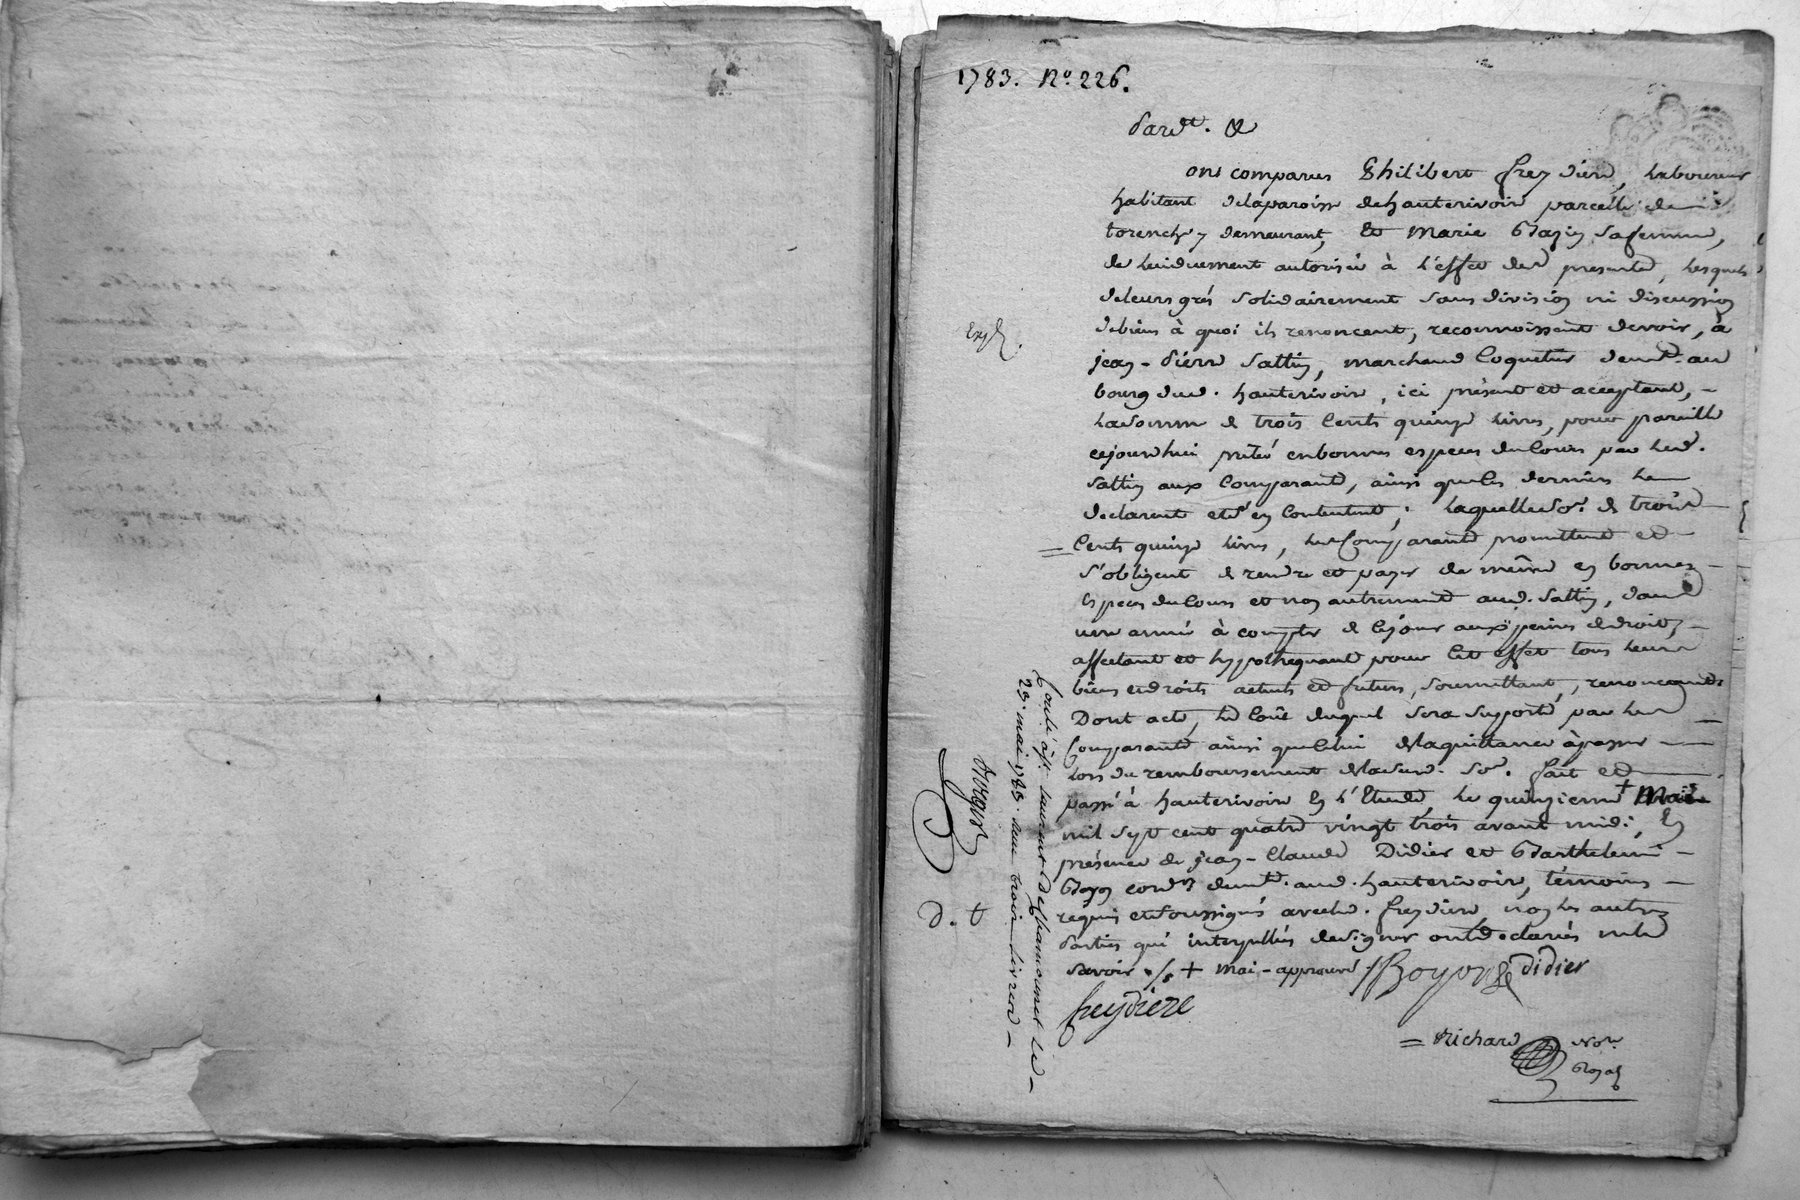 1783. No. 226.
Pardt. &
ont comparus Philibert freydiere, laboureur
habitant delaparoisse dehauterivoire parcelle de
torenchy demeurant, et Marie safemme,
de luiduement autorisée à l'effet des presentes, lesquels
deleurs grés solidairement sans division ni discussion
debiens à quoi ils renoncent, reconnoissent devoir, à
jean-pierre Sattin, marchand Coquetier demt. au
bourg dud. hauterivoire, ici présent et acceptant,
lasomme de trois Cents quinze livres, pour pareille
cejourdhui prêtée enbonnes especes duCours par led.
Sattin aux Comparants, ainsi queles derniers le
declarent et s'en Contentent; laquelleso.e de trois
Cents quinze livres, les Comparants promettent et
s'obligent de rendre et payer de même en bonnes
especes duCours et non autrement aud. Sattin, dans
une année à compter de Cejour aux peines dedroit,
affectant et hypothequant pour Cet effet tous leurs
biens etdroits actuels et futurs, soumettant, renonceant.
Dont acte, le Coût duquel sera supporté par les
Comparants ainsi queCelui delaquittance àpasser
lors du remboursement deladite. So.e. fait et
passé à hauterivoire en l'Etude, le quinzieme + Mai
mil sept cent quatre vingt trois avant midi, En
présence de jean-Claude Didier et Barthelemi
Boyon cord.rs demts. aud. hauterivoire, témoins
requis etsoussignés avecled. freydiere, nonles autres
Parties qui interpellées designer ontdeclarées nele
savoir ./. + mai-approuvé ./. Boyon Didier
freydiere
= Richard Nore.
Royal
Exp.
Conlé à St. laurent de Chamousset le
29. mai 1783. reçu trois livres
d. t